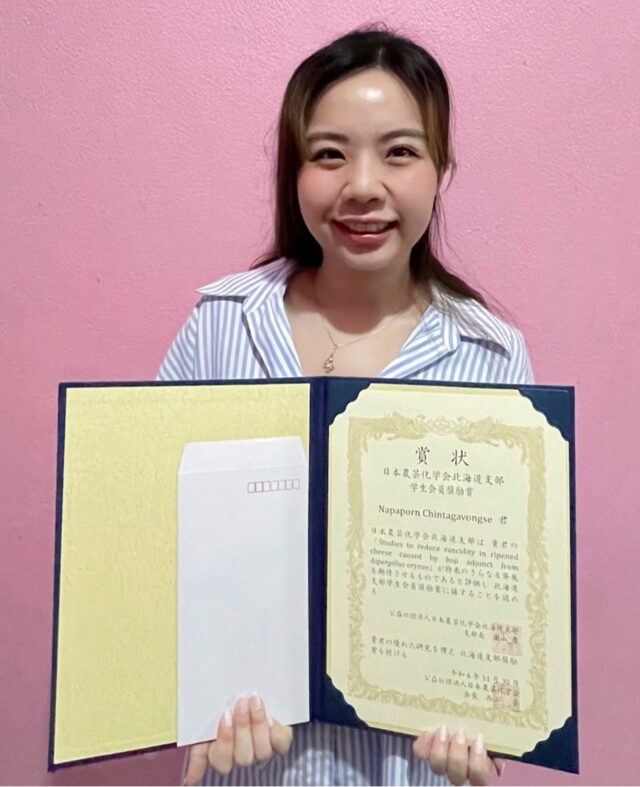 賞状
日本農芸化学会北海道支部
学生会員奨励賞
Napaporn Chintagavongse 君
日本農芸化学会北海道支部は 貴君の
「Studies to reduce rancidity in ripened
cheese caused by koji adjunct from
Aspergillus oryzae」が将来のさらなる発展
を期待させるものであると評価し 北海道
支部学生会員奨励賞に値することを認め
る
公益社団法人日本農芸化学会北海道支部
支部長
貴君の優れた研究を讃え 北海道支部奨励
賞を授ける
令和6年11月30日
公益社団法人日本農芸化学会
会長 西